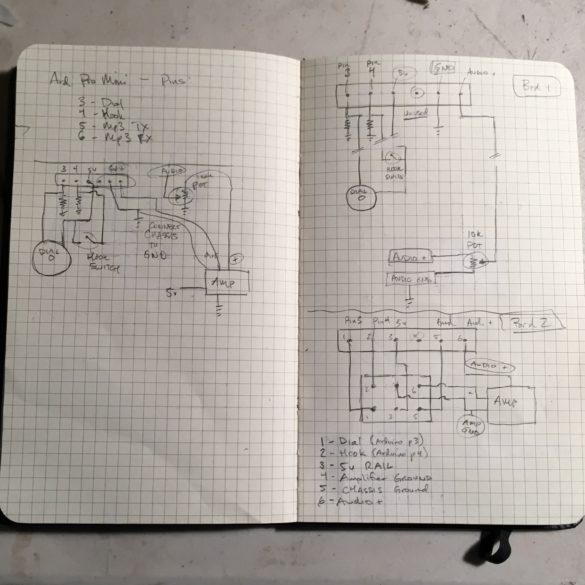 Ard Pro Mini - Pins
3 - Dial
4 - Hook
5 - Mp3 TX
6 - Mp3 RX
3 4 5v
AUDIO
10K
POT
CONNECT
CHASSIS
TO
GND
DIAL
HOOK
SWITCH
5v
AMP
+
Pin
3
Pin
4
5v
GND
AUDIO +
Brd 1
UNUSED
HOOK
SWITCH
DIAL
10K
POT
AUDIO +
AUDIO GND
Pin 3 Pin 4 5v Aud +
Bord 2
1 2 3 4 5 6
AUDIO +
AMP
AMP
GND
1 - Dial (Arduino p3)
2 - Hook (Arduino p4)
3 - 5v RAIL
4 - Amplifier GROUND
5 - CHASSIS Ground
6 - Audio +